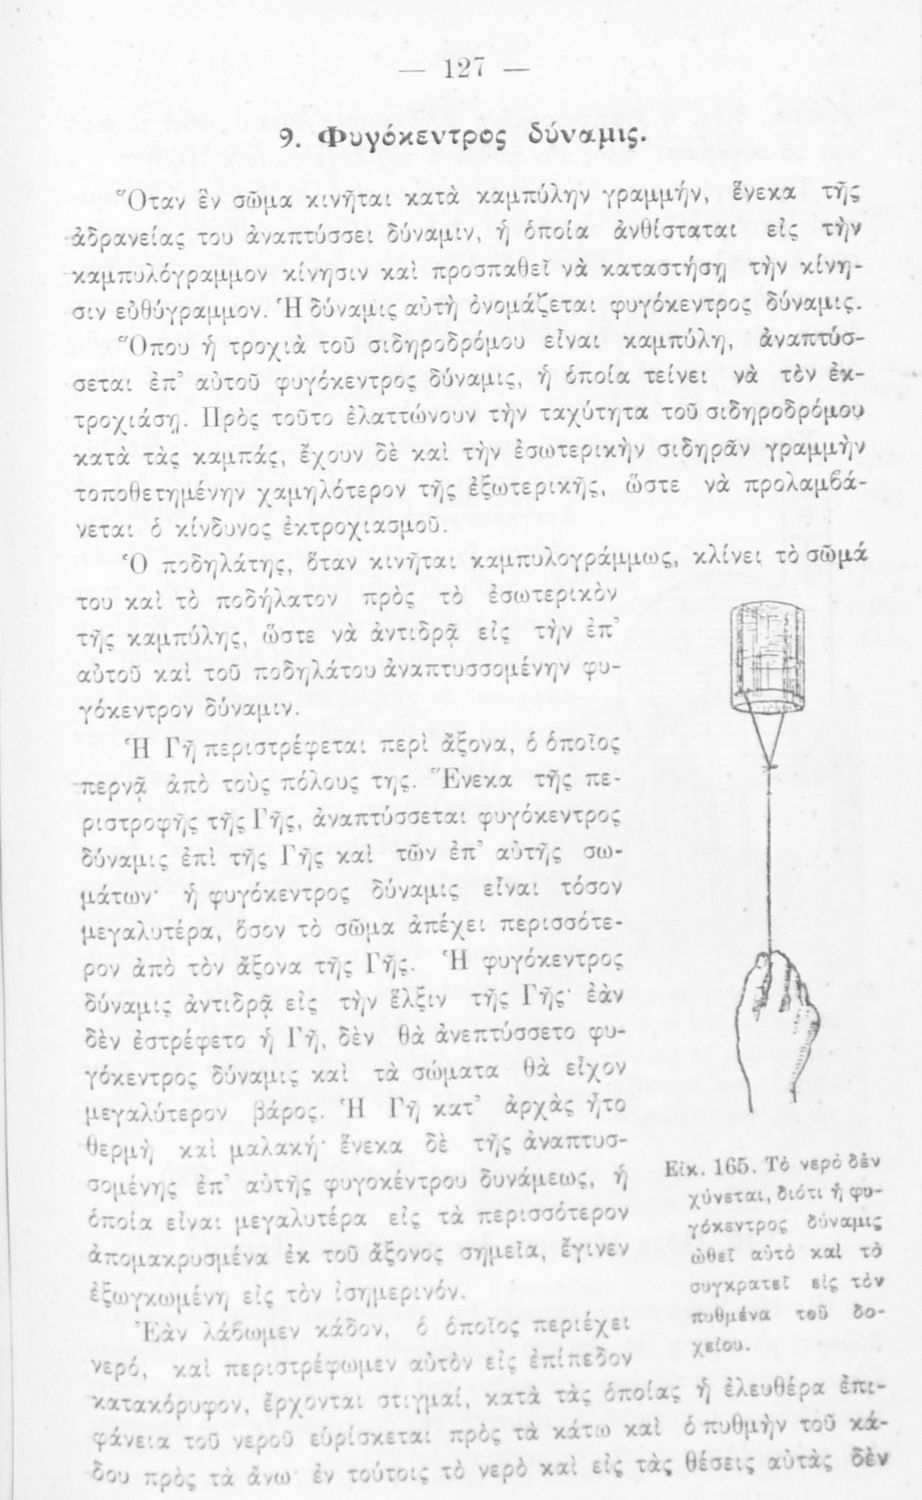 — 127 —
9. Φυγόκεντρος δύναμις.
Ὅταν ἓν σῶμα κινῆται κατὰ καμπύλην γραμμήν, ἕνεκα τῆς
ἀδρανείας του ἀναπτύσσει δύναμιν, ἡ ὁποία ἀνθίσταται εἰς τὴν
καμπυλόγραμμον κίνησιν καὶ προσπαθεῖ νὰ καταστήσῃ τὴν κίνη-
σιν εὐθύγραμμον. Ἡ δύναμις αὐτὴ ὀνομάζεται φυγόκεντρος δύναμις.
Ὅπου ἡ τροχιὰ τοῦ σιδηροδρόμου εἶναι καμπύλη, ἀναπτύσ-
σεται ἐπ’ αὐτοῦ φυγόκεντρος δύναμις, ἡ ὁποία τείνει νὰ τὸν ἐκ-
τροχιάσῃ. Πρὸς τοῦτο ἐλαττώνουν τὴν ταχύτητα τοῦ σιδηροδρόμου
κατὰ τὰς καμπάς, ἔχουν δὲ καὶ τὴν ἐσωτερικὴν σιδηρᾶν γραμμὴν
τοποθετημένην χαμηλότερον τῆς ἐξωτερικῆς, ὥστε νὰ προλαμβά-
νεται ὁ κίνδυνος ἐκτροχιασμοῦ.
Ὁ ποδηλάτης, ὅταν κινῆται καμπυλογράμμως, κλίνει τὸ σῶμά
του καὶ τὸ ποδήλατον πρὸς τὸ ἐσωτερικὸν
τῆς καμπύλης, ὥστε νὰ ἀντιδρᾷ εἰς τὴν ἐπ’
αὐτοῦ καὶ τοῦ ποδηλάτου ἀναπτυσσομένην φυ-
γόκεντρον δύναμιν.
Ἡ Γῆ περιστρέφεται περὶ ἄξονα, ὁ ὁποῖος
περνᾷ ἀπὸ τοὺς πόλους της. Ἕνεκα τῆς πε-
ριστροφῆς τῆς Γῆς, ἀναπτύσσεται φυγόκεντρος
δύναμις ἐπὶ τῆς Γῆς καὶ τῶν ἐπ’ αὐτῆς σω-
μάτων· ἡ φυγόκεντρος δύναμις εἶναι τόσον
μεγαλυτέρα, ὅσον τὸ σῶμα ἀπέχει περισσότε-
ρον ἀπὸ τὸν ἄξονα τῆς Γῆς. Ἡ φυγόκεντρος
δύναμις ἀντιδρᾷ εἰς τὴν ἕλξιν τῆς Γῆς· ἐὰν
δὲν ἐστρέφετο ἡ Γῆ, δὲν θὰ ἀνεπτύσσετο φυ-
γόκεντρος δύναμις καὶ τὰ σώματα θὰ εἶχον
μεγαλύτερον βάρος. Ἡ Γῆ κατ’ ἀρχὰς ἦτο
θερμὴ καὶ μαλακή· ἕνεκα δὲ τῆς ἀναπτυσ-
σομένης ἐπ’ αὐτῆς φυγοκέντρου δυνάμεως, ἡ
ὁποία εἶναι μεγαλυτέρα εἰς τὰ περισσότερον
ἀπομακρυσμένα ἐκ τοῦ ἄξονος σημεῖα, ἔγινεν
ἐξωγκωμένη εἰς τὸν ἰσημερινόν.
Ἐὰν λάβωμεν κάδον, ὁ ὁποῖος περιέχει
νερό, καὶ περιστρέφωμεν αὐτὸν εἰς ἐπίπεδον
κατακόρυφον, ἔρχονται στιγμαί, κατὰ τὰς ὁποίας ἡ ἐλευθέρα ἐπι-
φάνεια τοῦ νεροῦ εὑρίσκεται πρὸς τὰ κάτω καὶ ὁ πυθμὴν τοῦ κά-
δου πρὸς τὰ ἄνω· ἐν τούτοις τὸ νερὸ καὶ εἰς τὰς θέσεις αὐτὰς δὲν
Εἰκ. 165. Τὸ νερὸ δὲν
χύνεται, διότι ἡ φυ-
γόκεντρος δύναμις
ὠθεῖ αὐτὸ καὶ τὸ
συγκρατεῖ εἰς τὸν
πυθμένα τοῦ δο-
χείου.